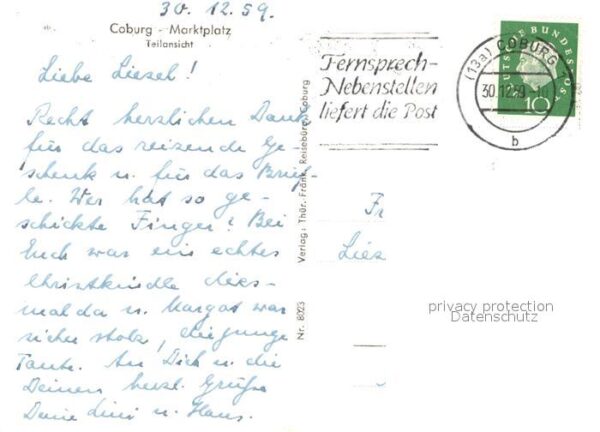 30.12.59.
Coburg - Marktplatz
Teilansicht
Liebe Liesel!
Recht herzlichen Dank
für das reizende Ge-
schenk u. für das Brief-
le. Wer hat so ge-
schickte Finger? Bei
Euch war ein echtes
Christkindle dies-
mal da u. Margot war
sicher stolz, die junge
Tante. An Dich u. die
Deinen herzl. Grüße
Deine Lini u. Hans.
Nr. 8023 Verlag: Thür. Fränk. Reisebüro, Coburg
Fernsprech-
Nebenstellen
liefert die Post
(13a) COBURG 1
30.12.59
b
DEUTSCHE BUNDESPOST
10
Fr
Lies
privacy protection
Datenschutz